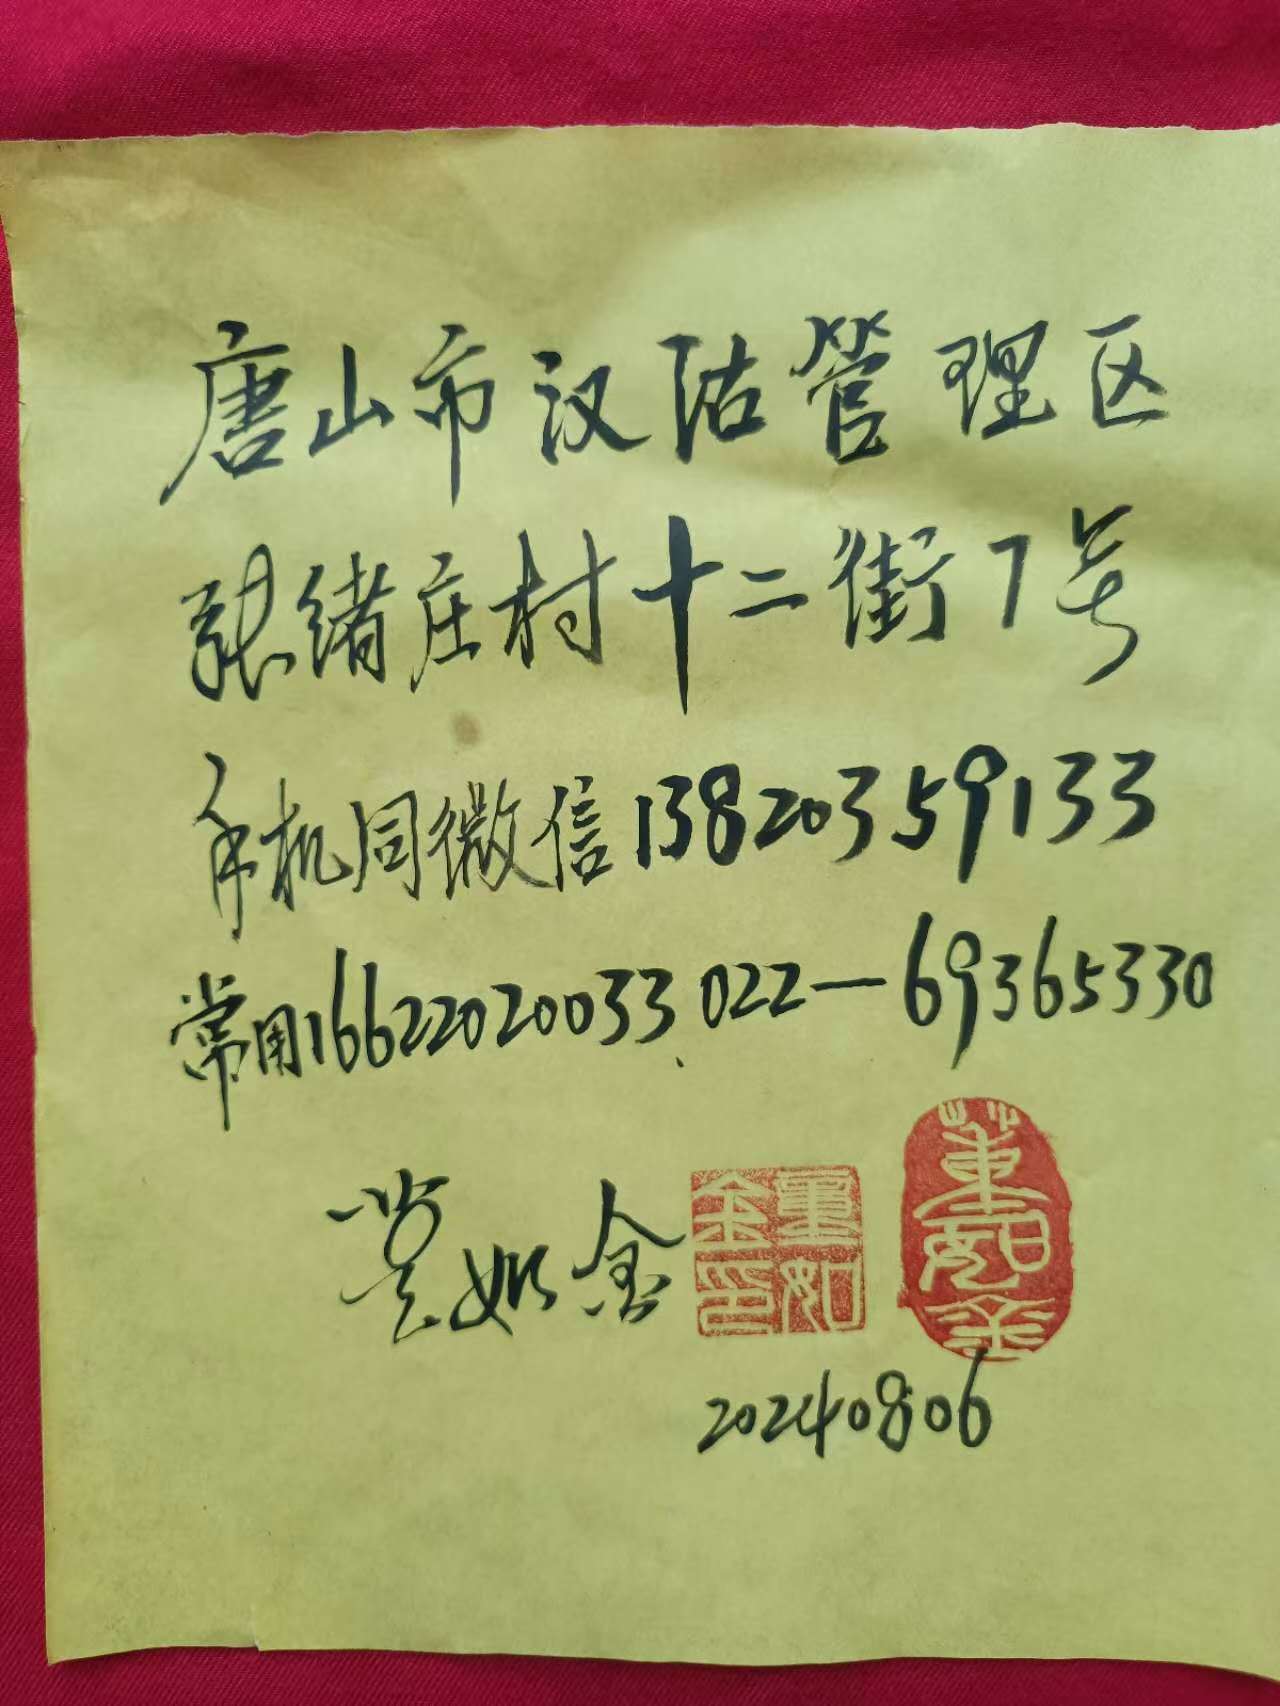 唐山市汉沽管理区
张绪庄村十二街7号
手机同微信13820359133
常用16622020033 022—69365330
董如金
董如金印
董如金
20240806